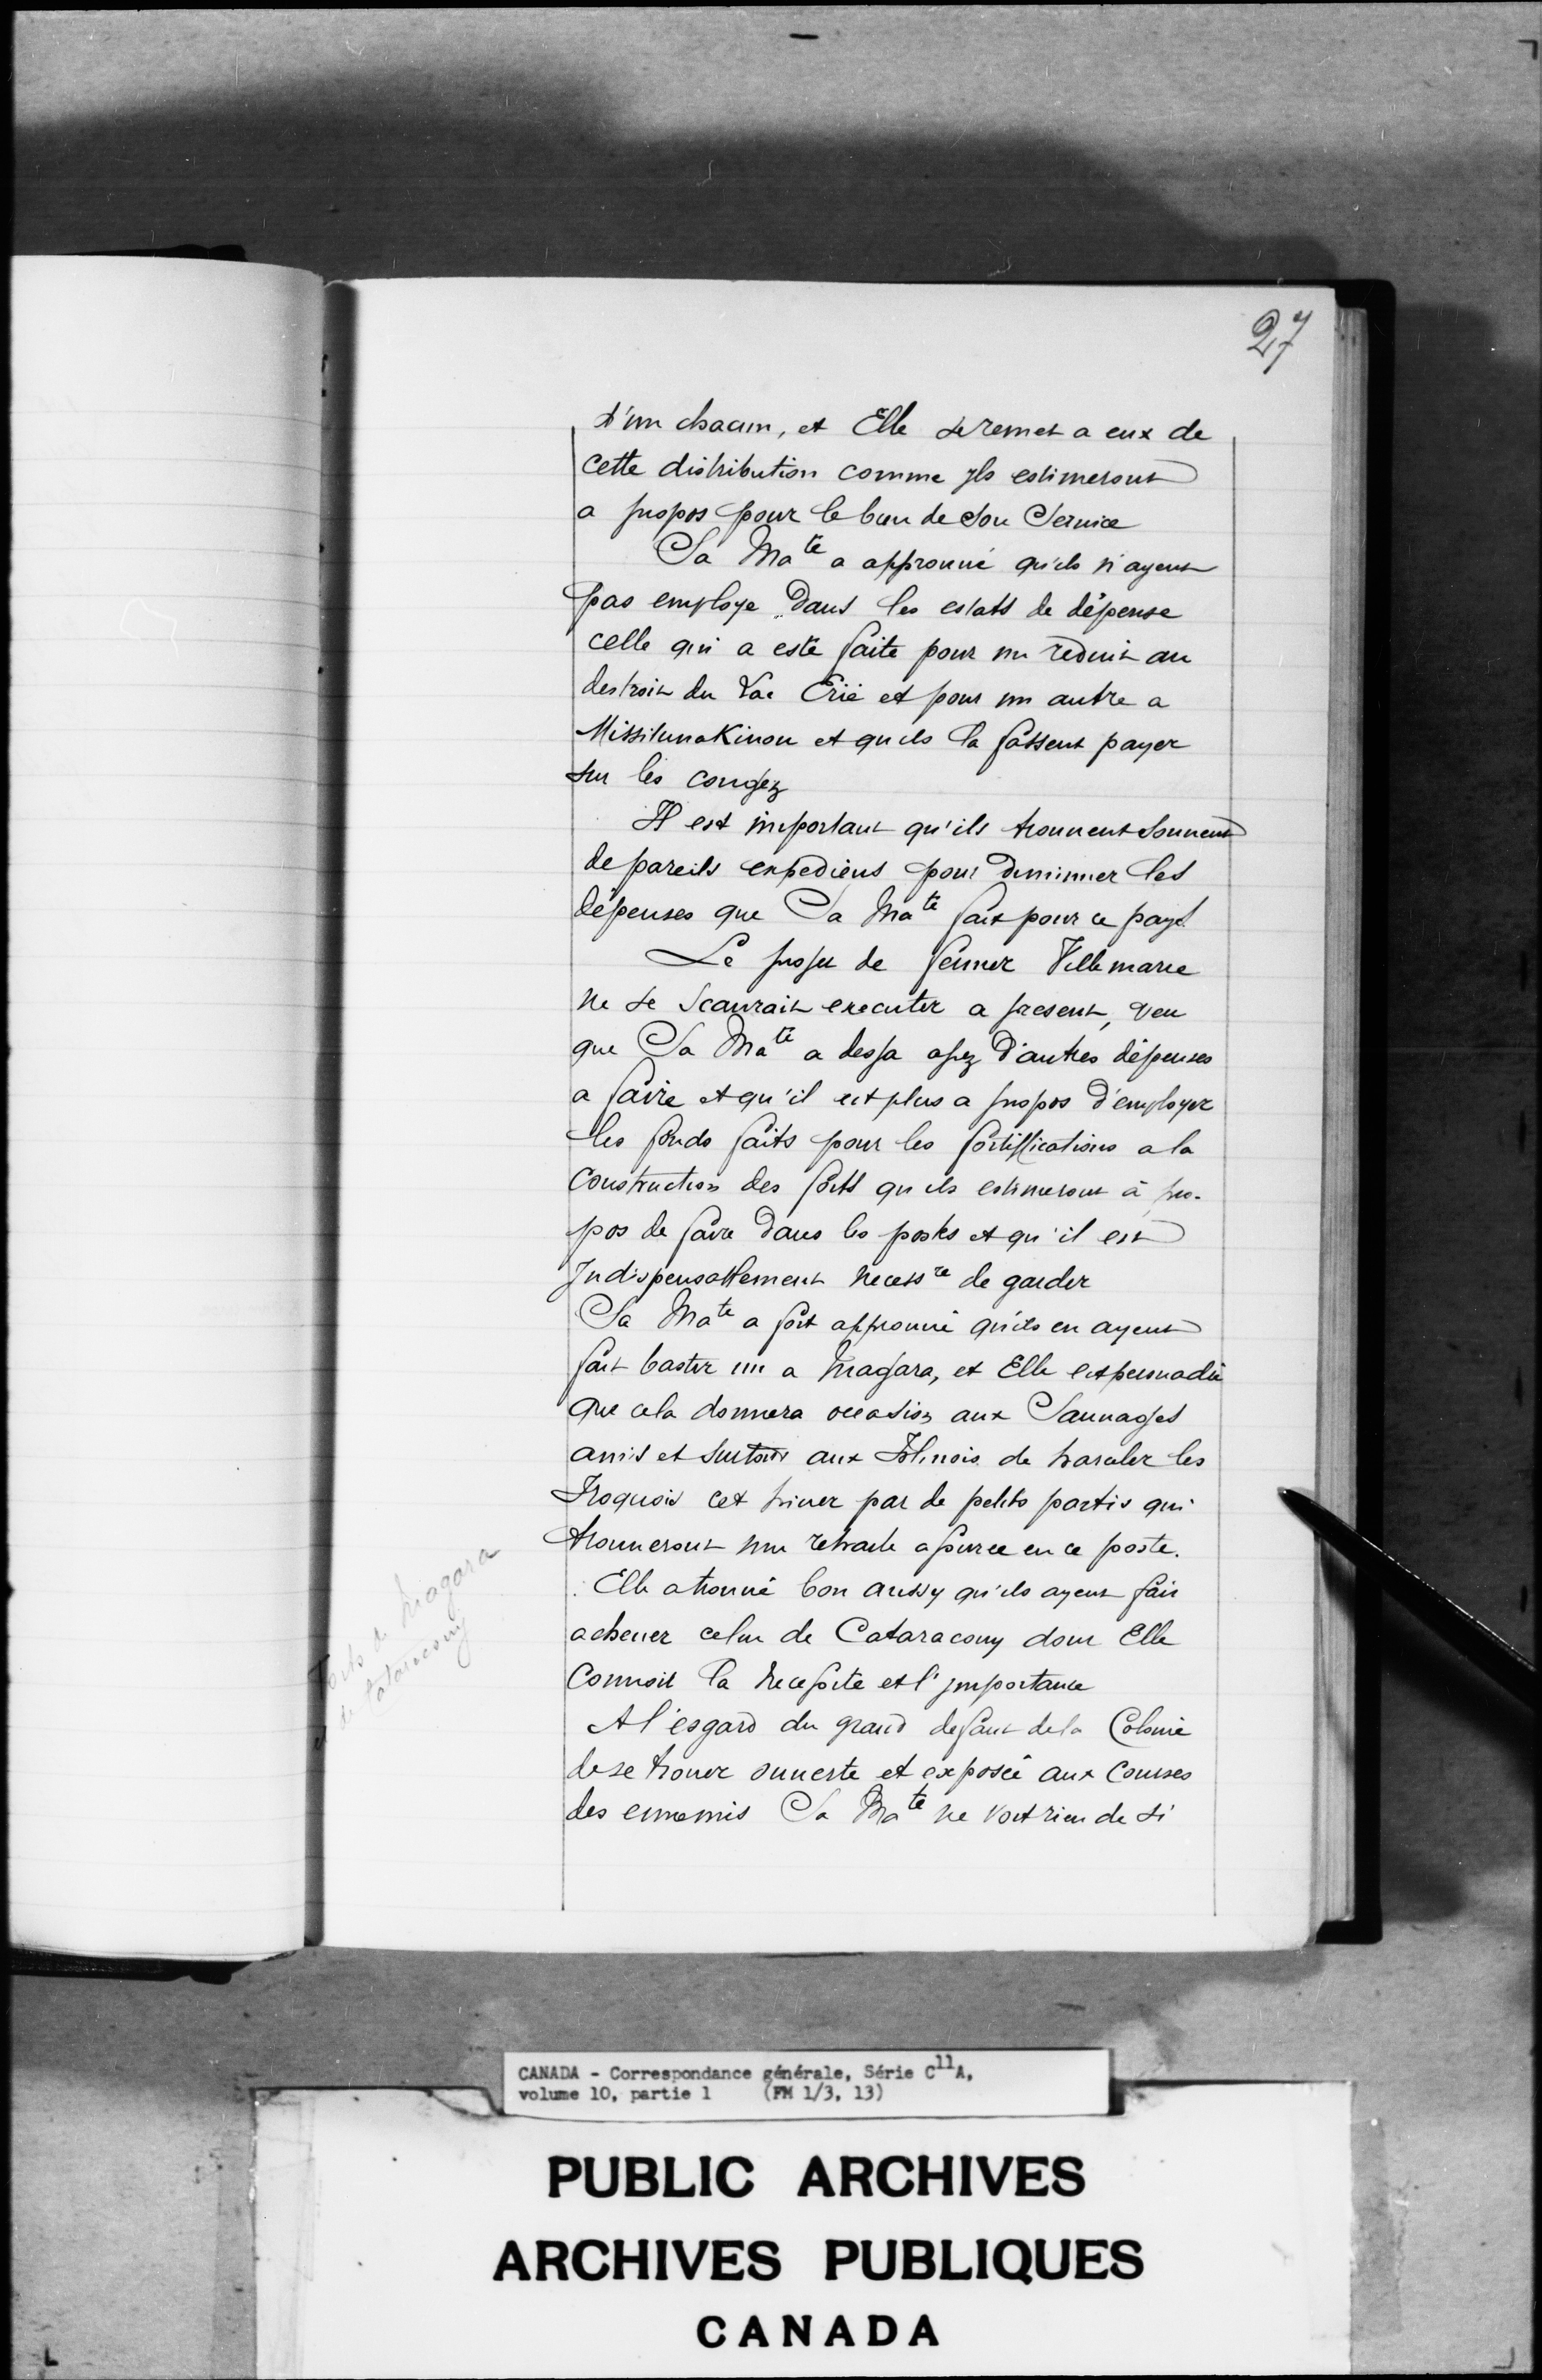 27
d'un chacun, et Elle se remet a eux de
cette distribution comme jls estimeront
a propos pour le bien de son Service
Sa Ma^té a approuué qu'ils n'ayent
pas employe dans les estats de dépense
celle qui a esté faite pour un reduit au
destroit du Lac Erié et pour un autre a
Missilimakinou et qu'ils la fassent payer
sur les congez
Il est important qu'ils trouuent souuent
de pareils expediens pour diminuer les
dépenses que Sa Ma^té fait pour ce pays
Le projet de fermer Ville marie
ne se scaurait executer a present, veu
que Sa Ma^té a desja assez d'autres dépenses
a faire et qu'il est plus a propos d'employer
les fonds faits pour les fortiffications a la
construction des forts qu'ils estimeront à pro-
pos de faire dans les postes et qu'il est
Jndispensablement necess^re de garder
Sa Ma^té a fort approuué qu'ils en ayent
fait bastir un a Niagara, et Elle est persuadée
que cela donnera occasion aux Sauuages
amis et surtout aux Islinois de harceler les
Iroquois cet hiuer par de petits partis qui
trouueront une retraite assurée en ce poste.
Elle a trouué bon aussy qu'ils ayent fait
acheuer celuy de Cataracouy dont Elle
connoit la necessite et l'jmportance
A l'esgard du grand defaut de la Colonie
de se trouer ouuerte et exposée aux Courses
des ennemis Sa Ma^té ne voit rien de si
forts de Niagara
et de Cataracouy
CANADA - Correspondance générale, Série C^11A,
volume 10, partie 1 (FM 1/3, 13)
PUBLIC ARCHIVES
ARCHIVES PUBLIQUES
CANADA